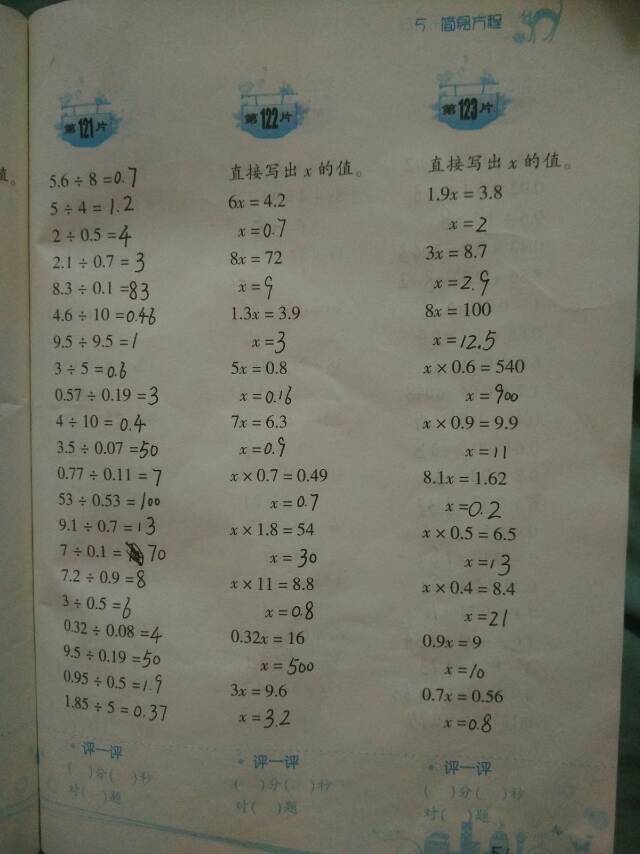 值。
5 简易方程
第121片
5.6 ÷ 8 = 0.7
5 ÷ 4 = 1.2
2 ÷ 0.5 = 4
2.1 ÷ 0.7 = 3
8.3 ÷ 0.1 = 83
4.6 ÷ 10 = 0.46
9.5 ÷ 9.5 = 1
3 ÷ 5 = 0.6
0.57 ÷ 0.19 = 3
4 ÷ 10 = 0.4
3.5 ÷ 0.07 = 50
0.77 ÷ 0.11 = 7
53 ÷ 0.53 = 100
9.1 ÷ 0.7 = 13
7 ÷ 0.1 = 70
7.2 ÷ 0.9 = 8
3 ÷ 0.5 = 6
0.32 ÷ 0.08 = 4
9.5 ÷ 0.19 = 50
0.95 ÷ 0.5 = 1.9
1.85 ÷ 5 = 0.37
评一评
( )分( )秒
对( )题
第122片
直接写出 x 的值。
6x = 4.2
x = 0.7
8x = 72
x = 9
1.3x = 3.9
x = 3
5x = 0.8
x = 0.16
7x = 6.3
x = 0.9
x × 0.7 = 0.49
x = 0.7
x × 1.8 = 54
x = 30
x × 11 = 8.8
x = 0.8
0.32x = 16
x = 500
3x = 9.6
x = 3.2
评一评
( )分( )秒
对( )题
第123片
直接写出 x 的值。
1.9x = 3.8
x = 2
3x = 8.7
x = 2.9
8x = 100
x = 12.5
x × 0.6 = 540
x = 900
x × 0.9 = 9.9
x = 11
8.1x = 1.62
x = 0.2
x × 0.5 = 6.5
x = 13
x × 0.4 = 8.4
x = 21
0.9x = 9
x = 10
0.7x = 0.56
x = 0.8
评一评
( )分( )秒
对( )题